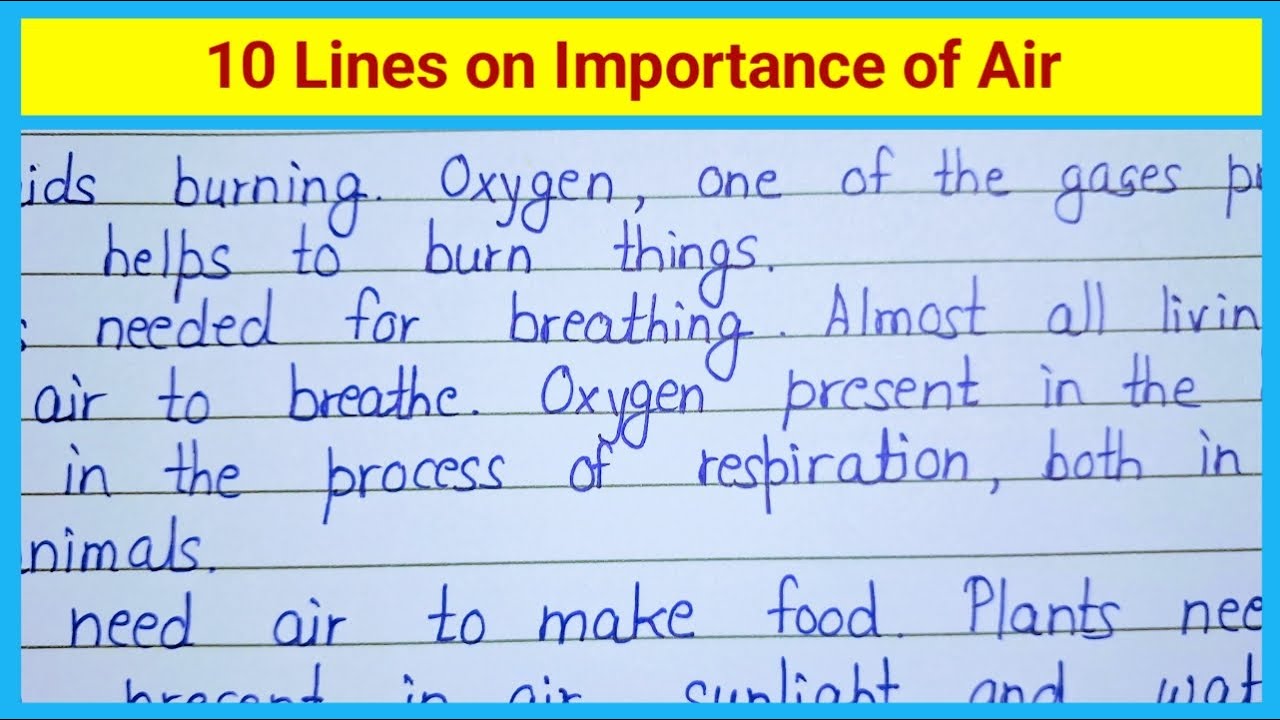 10 Lines on Importance of Air
ids burning. Oxygen, one of the gases
helps to burn things.
needed for breathing. Almost all livin
air to breathe. Oxygen present in the
in the process of respiration, both in
nimals.
need air to make food. Plants nee
present in air sunlight and wat